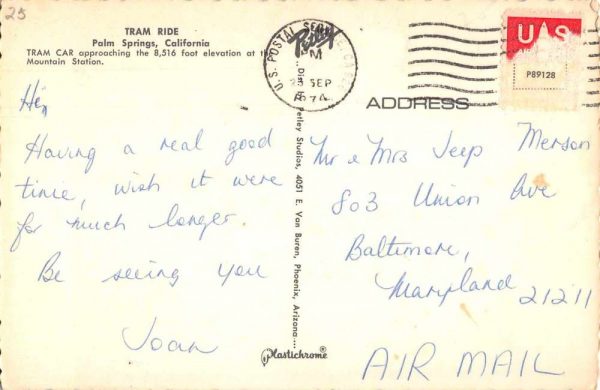 25
TRAM RIDE
Palm Springs, California
TRAM CAR approaching the 8,516 foot elevation at
Mountain Station.
Hi,
Having a real good
time, wish it were
for much longer.
Be seeing you
Joan
Petley Studios, 4051 E. Van Buren, Phoenix, Arizona
Plastichrome®
U.S. POSTAL SERVICE
PM
23 SEP
1974
Petley
US
P89128
ADDRESS
Mr & Mrs Jeep Merson
803 Union Ave
Baltimore,
Maryland 21211
AIR MAIL